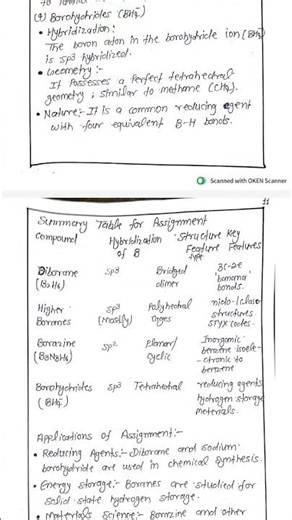 (9) Borohydrides (BH₄⁻)
• Hybridization:
The boron atom in the borohydride ion (BH₄⁻)
is sp3 hybridized.
• Geometry:-
It Possesses a Perfect tetrahedral
geometry ; similar to methane (CH₄).
• Nature:- It is a common reducing agent
with four equivalent B-H bonds.
Scanned with OKEN Scanner
Summary Table for Assignment
Compound Hybridization of B Structure type Key Feature Features
Diborane (B₂H₆) sp3 Bridged dimer 3c-2e 'banana' bonds.
Higher Boranes sp3 (mostly) Polyhedral cages nido-/closo structures STYX codes.
Borazine (B₃N₃H₆) sp2 Planar/ cyclic Inorganic benzene isoele- -ctronic to benzene
Borohydrides (BH₄⁻) sp3 Tetrahedral reducing agents hydrogen storage materials.
Applications of Assignment:-
• Reducing Agents:- Diborane and sodium
borohydride are used in chemical synthesis.
• Energy storage:- Boranes are studied for
solid state hydrogen storage.
• Materials Science:- Borazine and other